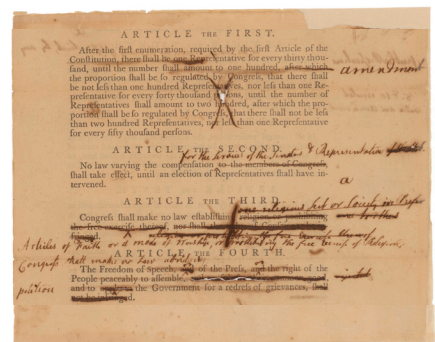 ARTICLE THE FIRST.
After the first enumeration, required by the first Article of the
Constitution, there shall be one Representative for every thirty thou-
sand, until the number shall amount to one hundred, after which
amendment
the proportion shall be so regulated by Congress, that there shall
be not less than one hundred Representatives, nor less than one Re-
presentative for every forty thousand persons, until the number of
Representatives shall amount to two hundred, after which the pro-
portion shall be so regulated by Congress, that there shall not be less
than two hundred Representatives, nor less than one Representative
for every fifty thousand persons.
ARTICLE THE SECOND.
for the services of the Senators & Representatives
No law varying the compensation to the members of Congress,
shall take effect, until an election of Representatives shall have in-
tervened.
a
ARTICLE THE THIRD.
one religious Sect or Society in
Congress shall make no law establishing religion or prohibiting
the free exercise thereof, nor shall
Articles of Faith or a mode of Worship, or prohibiting the free exercise of Religion,
ARTICLE THE FOURTH.
Congress shall make no Law abridging
The Freedom of Speech, of the Press, and the right of the
People peaceably to assemble,
petition
and to the Government for a redress of grievances, shall
not be infringed.